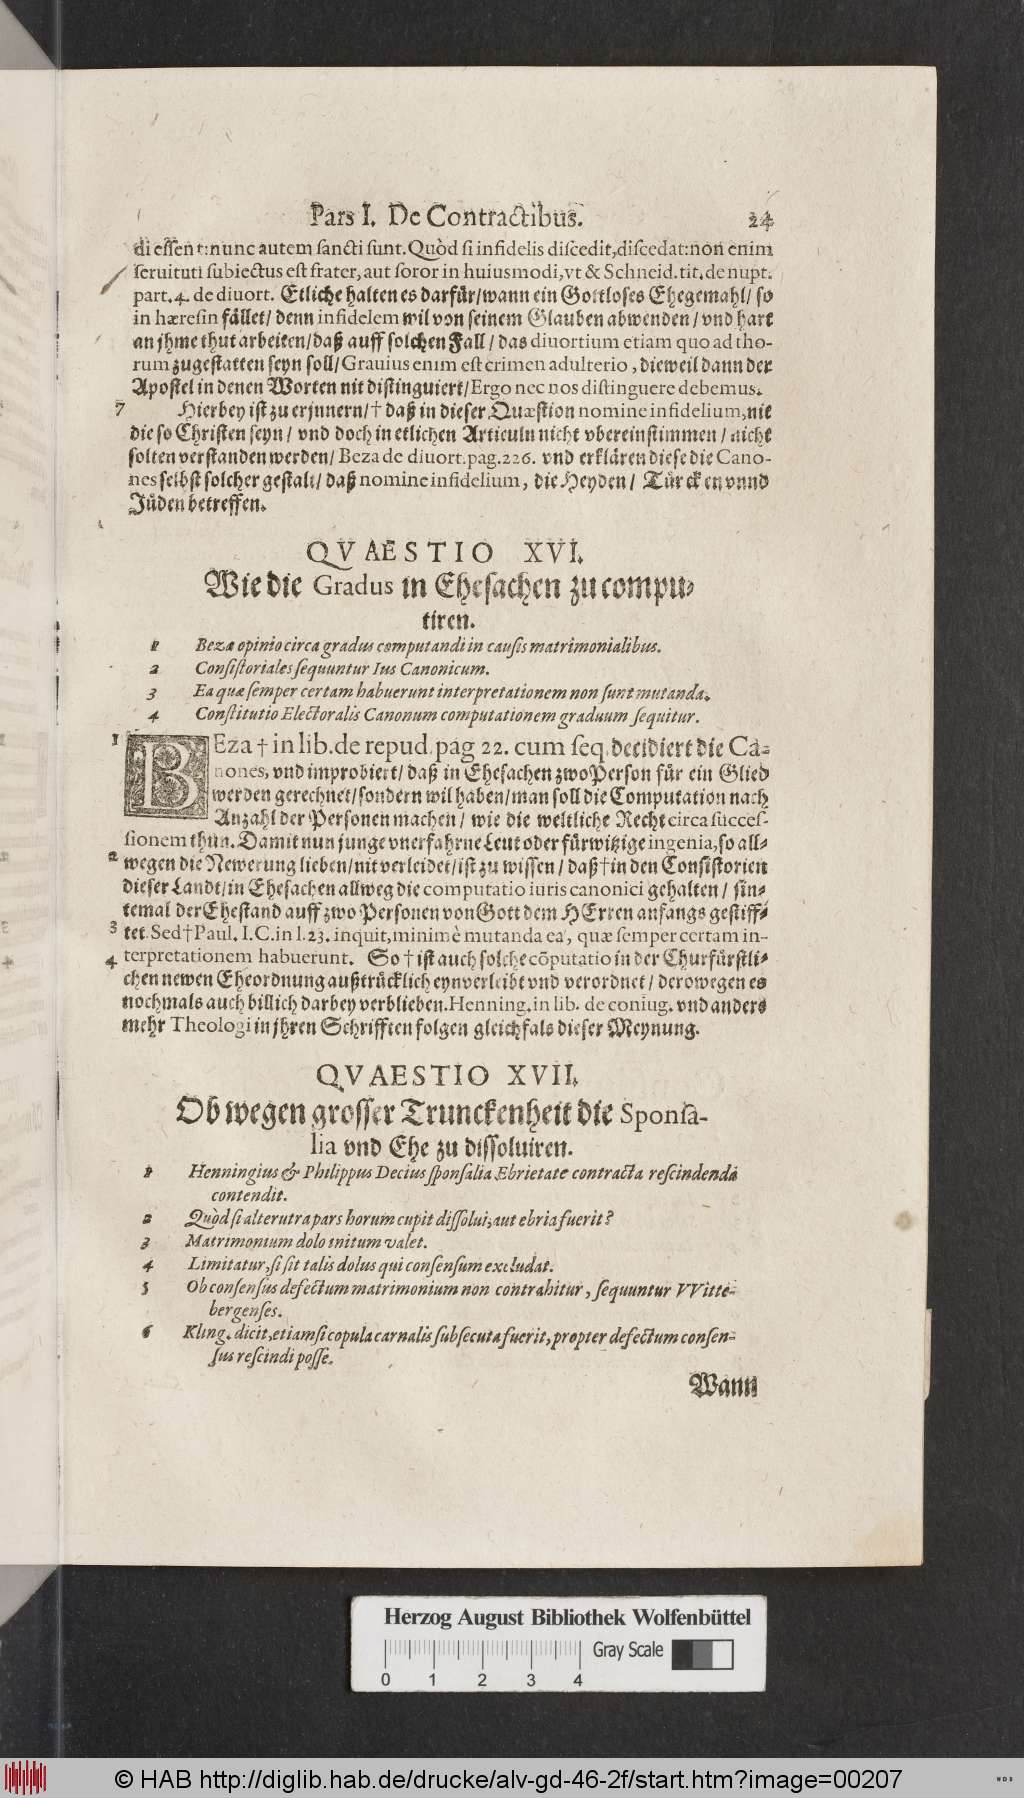 Pars I. De Contractibus. 24
di essent: nunc autem sancti sunt. Quòd si infidelis discedit, discedat: non enim
seruituti subiectus est frater, aut soror in huiusmodi, vt & Schneid. tit. de nupt.
part. 4. de diuort. Etliche halten es darfür/ wann ein Gottloses Ehegemahl/ so
in hæresin fället/ denn infidelem wil von seinem Glauben abwenden/ vnd hart
an jhme thut arbeiten/ daß auff solchen Fall/ das diuortium etiam quo ad tho-
rum zugestatten seyn soll/ Grauius enim est crimen adulterio, dieweil dann der
Apostel in denen Worten nit distinguiert/ Ergo nec nos distinguere debemus.
7 Hierbey ist zu erjnnern/ † daß in dieser Quæstion nomine infidelium, nit
die so Christen seyn/ vnd doch in etlichen Articuln nicht vbereinstimmen/ nicht
solten verstanden werden/ Beza de diuort. pag. 226. vnd erklären diese die Cano-
nes selbst solcher gestalt/ daß nomine infidelium, die Heyden/ Türcken vnnd
Jüden betreffen.
QVAESTIO XVI.
Wie die Gradus in Ehesachen zu compu-
tiren.
1 Bezæ opinio circa gradus computandi in causis matrimonialibus.
2 Consistoriales sequuntur Ius Canonicum.
3 Ea quæ semper certam habuerunt interpretationem non sunt mutanda.
4 Constitutio Electoralis Canonum computationem graduum sequitur.
1 BEza † in lib. de repud. pag 22. cum seq. decidiert die Ca-
nones, vnd improbiert/ daß in Ehesachen zwo Person für ein Glied
werden gerechnet/ sondern wil haben/ man soll die Computation nach
Anzahl der Personen machen/ wie die weltliche Recht circa succes-
sionem thun. Damit nun junge vnerfahrne Leut oder fürwitzige ingenia, so all-
2 wegen die Newerung lieben/ nit verleidet/ ist zu wissen/ daß † in den Consistorien
dieser Landt/ in Ehesachen allweg die computatio iuris canonici gehalten/ sin-
temal der Ehestand auff zwo Personen von Gott dem HErren anfangs gestiff-
3 tet. Sed † Paul. I. C. in l. 23. inquit, minimè mutanda ea, quæ semper certam in-
4 terpretationem habuerunt. So † ist auch solche cõputatio in der Churfürstli-
chen newen Eheordnung außtrücklich eynverleibt vnd verordnet/ derowegen es
nochmals auch billich darbey verblieben. Henning. in lib. de coniug. vnd anders
mehr Theologi in jhren Schrifften folgen gleichfals dieser Meynung.
QVAESTIO XVII.
Ob wegen grosser Trunckenheit die Sponsa-
lia vnd Ehe zu dissoluiren.
1 Henningius & Philippus Decius sponsalia Ebrietate contracta rescindenda
contendit.
2 Quòd si alterutra pars horum cupit dissolui, aut ebria fuerit?
3 Matrimonium dolo initum valet.
4 Limitatur, si sit talis dolus qui consensum excludat.
5 Ob consensus defectum matrimonium non contrahitur, sequuntur VVitte-
bergenses.
6 Kling. dicit, etiamsi copula carnalis subsecuta fuerit, propter defectum consen-
sus rescindi posse.
Wann
Herzog August Bibliothek Wolfenbüttel
Gray Scale
0 1 2 3 4
© HAB http://diglib.hab.de/drucke/alv-gd-46-2f/start.htm?image=00207